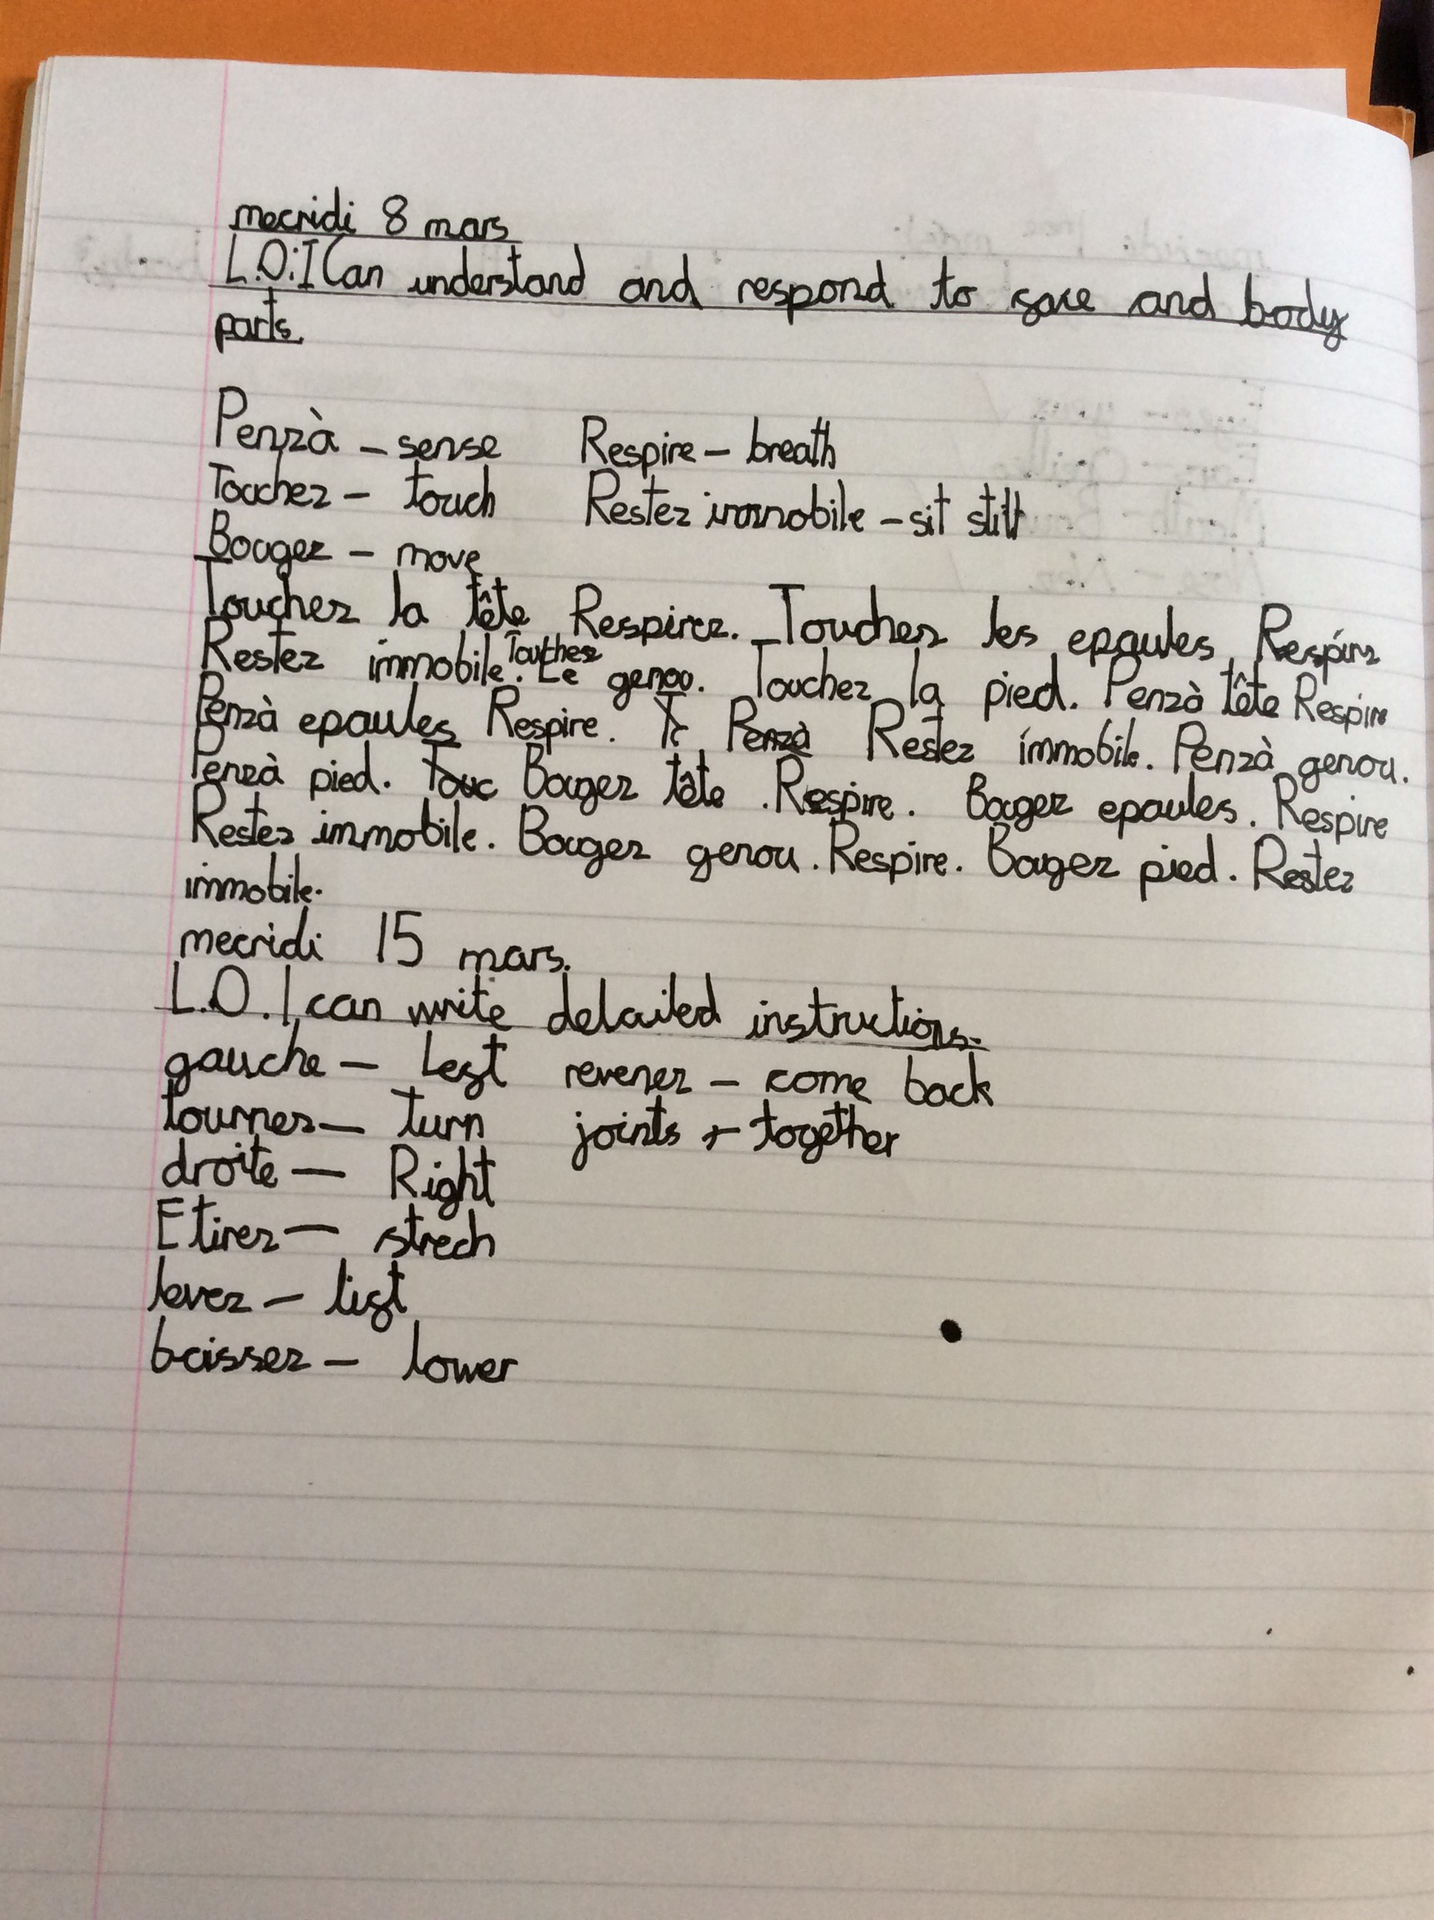 mecridi 8 mars
L.O: I Can understand and respond to face and body
parts.
Penzà - sense Respire - breath
Touchez - touch Restez immobile - sit still
Bougez - move
Touchez la tête Respirez. Touchez les epaules Respire
Restez immobile. Touchez Le genou. Touchez la pied. Penzà tête Respire
Penzà epaules Respire. Penzà Restez immobile. Penzà genou.
Penzà pied. Touc Bougez tête. Respire. Bougez epaules. Respire
Restez immobile. Bougez genou. Respire. Bougez pied. Restez
immobile.
mecridi 15 mars.
L.O. I can write detailed instructions.
gauche - Left revenez - come back
tournez - turn joints - together
droite - Right
Etirez - strech
levez - lift
baissez - lower